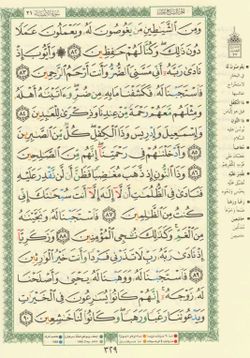 وَمِنَ ٱلشَّيَٰطِينِ مَن يَغُوصُونَ لَهُۥ وَيَعْمَلُونَ عَمَلًا
دُونَ ذَٰلِكَ ۖ وَكُنَّا لَهُمْ حَٰفِظِينَ ٨٢ ۞ وَأَيُّوبَ إِذْ
نَادَىٰ رَبَّهُۥٓ أَنِّى مَسَّنِىَ ٱلضُّرُّ وَأَنتَ أَرْحَمُ ٱلرَّٰحِمِينَ ٨٣
فَٱسْتَجَبْنَا لَهُۥ فَكَشَفْنَا مَا بِهِۦ مِن ضُرٍّ ۖ وَءَاتَيْنَٰهُ أَهْلَهُۥ
وَمِثْلَهُم مَّعَهُمْ رَحْمَةً مِّنْ عِندِنَا وَذِكْرَىٰ لِلْعَٰبِدِينَ ٨٤
وَإِسْمَٰعِيلَ وَإِدْرِيسَ وَذَا ٱلْكِفْلِ ۖ كُلٌّ مِّنَ ٱلصَّٰبِرِينَ
٨٥ وَأَدْخَلْنَٰهُمْ فِى رَحْمَتِنَآ ۖ إِنَّهُم مِّنَ ٱلصَّٰلِحِينَ
٨٦ وَذَا ٱلنُّونِ إِذ ذَّهَبَ مُغَٰضِبًا فَظَنَّ أَن لَّن نَّقْدِرَ عَلَيْهِ
فَنَادَىٰ فِى ٱلظُّلُمَٰتِ أَن لَّآ إِلَٰهَ إِلَّآ أَنتَ سُبْحَٰنَكَ إِنِّى
كُنتُ مِنَ ٱلظَّٰلِمِينَ ٨٧ فَٱسْتَجَبْنَا لَهُۥ وَنَجَّيْنَٰهُ
مِنَ ٱلْغَمِّ ۚ وَكَذَٰلِكَ نُۨجِى ٱلْمُؤْمِنِينَ ٨٨ وَزَكَرِيَّآ
إِذْ نَادَىٰ رَبَّهُۥ رَبِّ لَا تَذَرْنِى فَرْدًا وَأَنتَ خَيْرُ ٱلْوَٰرِثِينَ
٨٩ فَٱسْتَجَبْنَا لَهُۥ وَوَهَبْنَا لَهُۥ يَحْيَىٰ وَأَصْلَحْنَا
لَهُۥ زَوْجَهُۥٓ ۚ إِنَّهُمْ كَانُوا۟ يُسَٰرِعُونَ فِى ٱلْخَيْرَٰتِ
وَيَدْعُونَنَا رَغَبًا وَرَهَبًا ۖ وَكَانُوا۟ لَنَا خَٰشِعِينَ ٩٠
٣٢٩